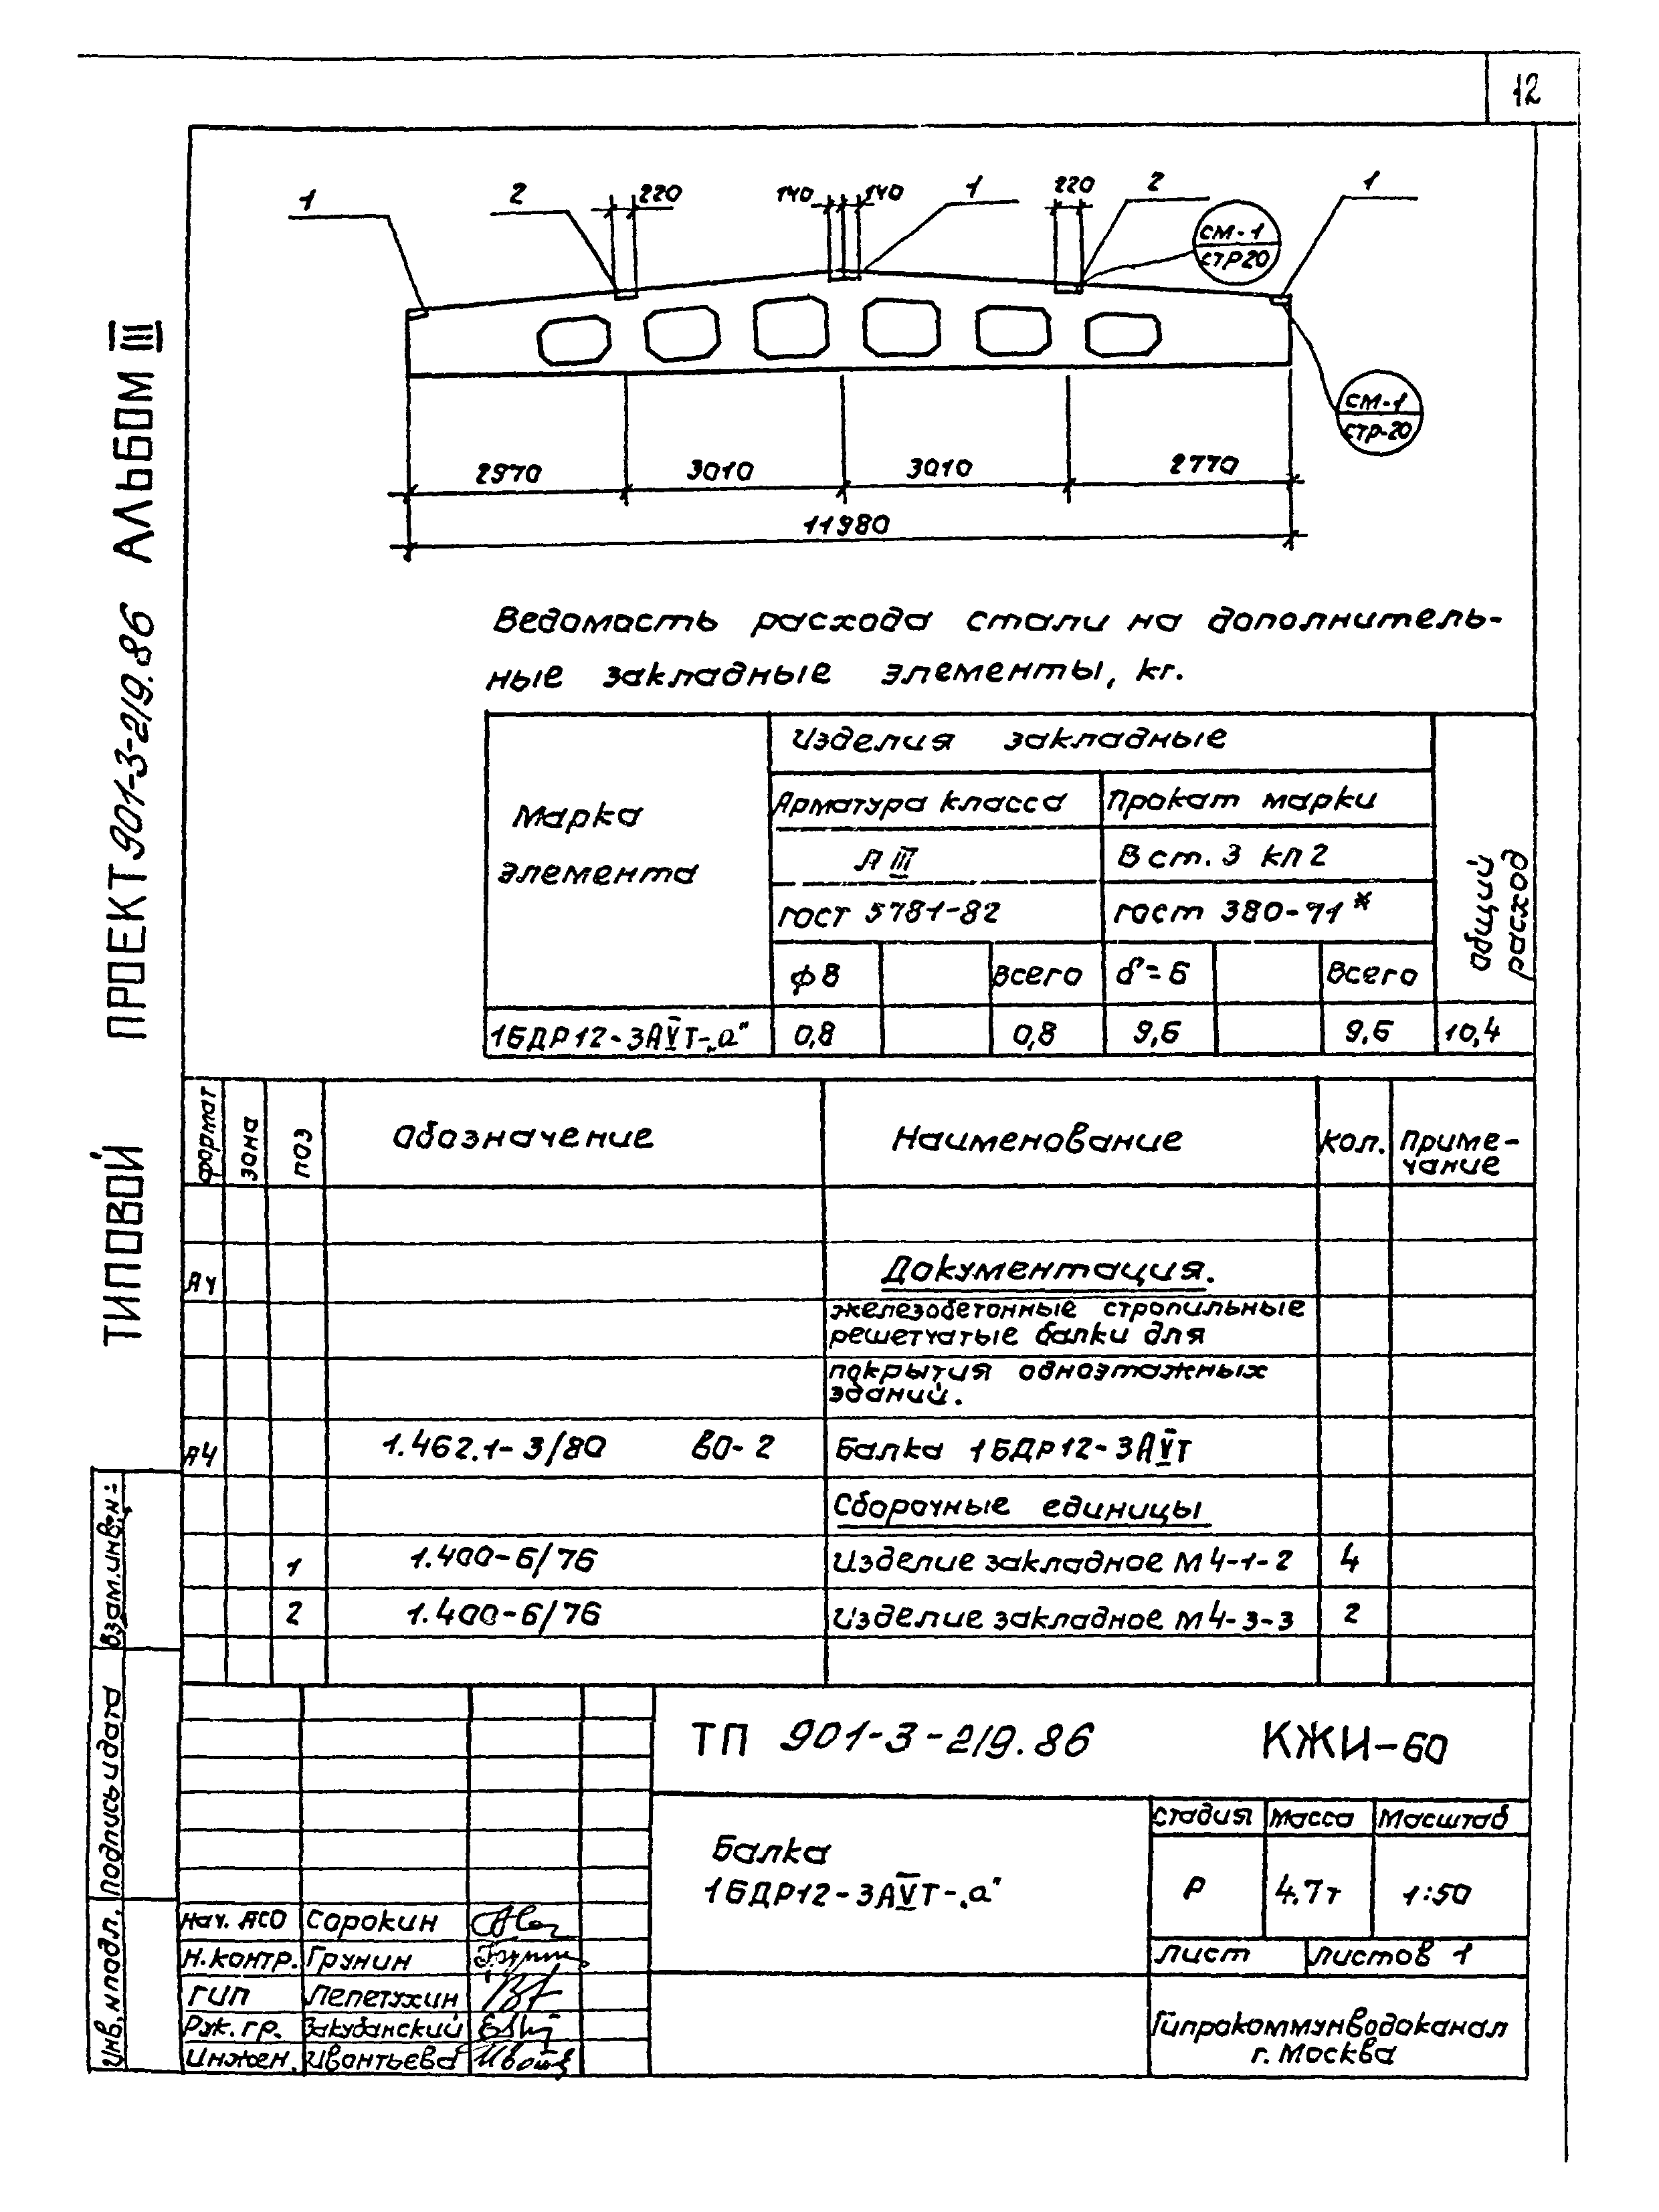 12
ТИПОВОЙ ПРОЕКТ 901-3-219.86 АЛЬБОМ III
1 2 220 140 140 1 220 2 1
см-1
стр20
см-1
стр-20
2970 3010 3010 2770
11980
Ведомость расхода стали на дополнитель-
ные закладные элементы, кг.
Марка
элемента
Изделия закладные
Общий
расход
Арматура класса Прокат марки
А III В ст. 3 кп 2
гост 5781-82 гост 380-71*
ф8 всего δ=6 всего
1БДР12-3АVТ-„а" 0,8 0,8 9,6 9,6 10,4
формат зона поз Обозначение Наименование кол. Приме-
чание
А4 Документация.
железобетонные стропильные
решетчатые балки для
покрытия одноэтажных
зданий.
А4 1.462.1-3/80 во-2 Балка 1БДР12-3АVТ
Сборочные единицы
1 1.400-6/76 Изделие закладное М4-1-2 4
2 1.400-6/76 Изделие закладное М4-3-3 2
Взам.инв.н=
Подпись и дата
Инв.н подл.
ТП 901-3-219.86 КЖИ-60
Балка
1БДР12-3АVТ-„а"
стадия Масса Масштаб
Р 4.7т 1:50
Лист Листов 1
Гипрокоммунводоканал
г. Москва
Нач. АСО Сорокин
Н.контр. Грунин
ГИП Лепетухин
Рук. гр. Закубанский
Инжен. Ивантьева